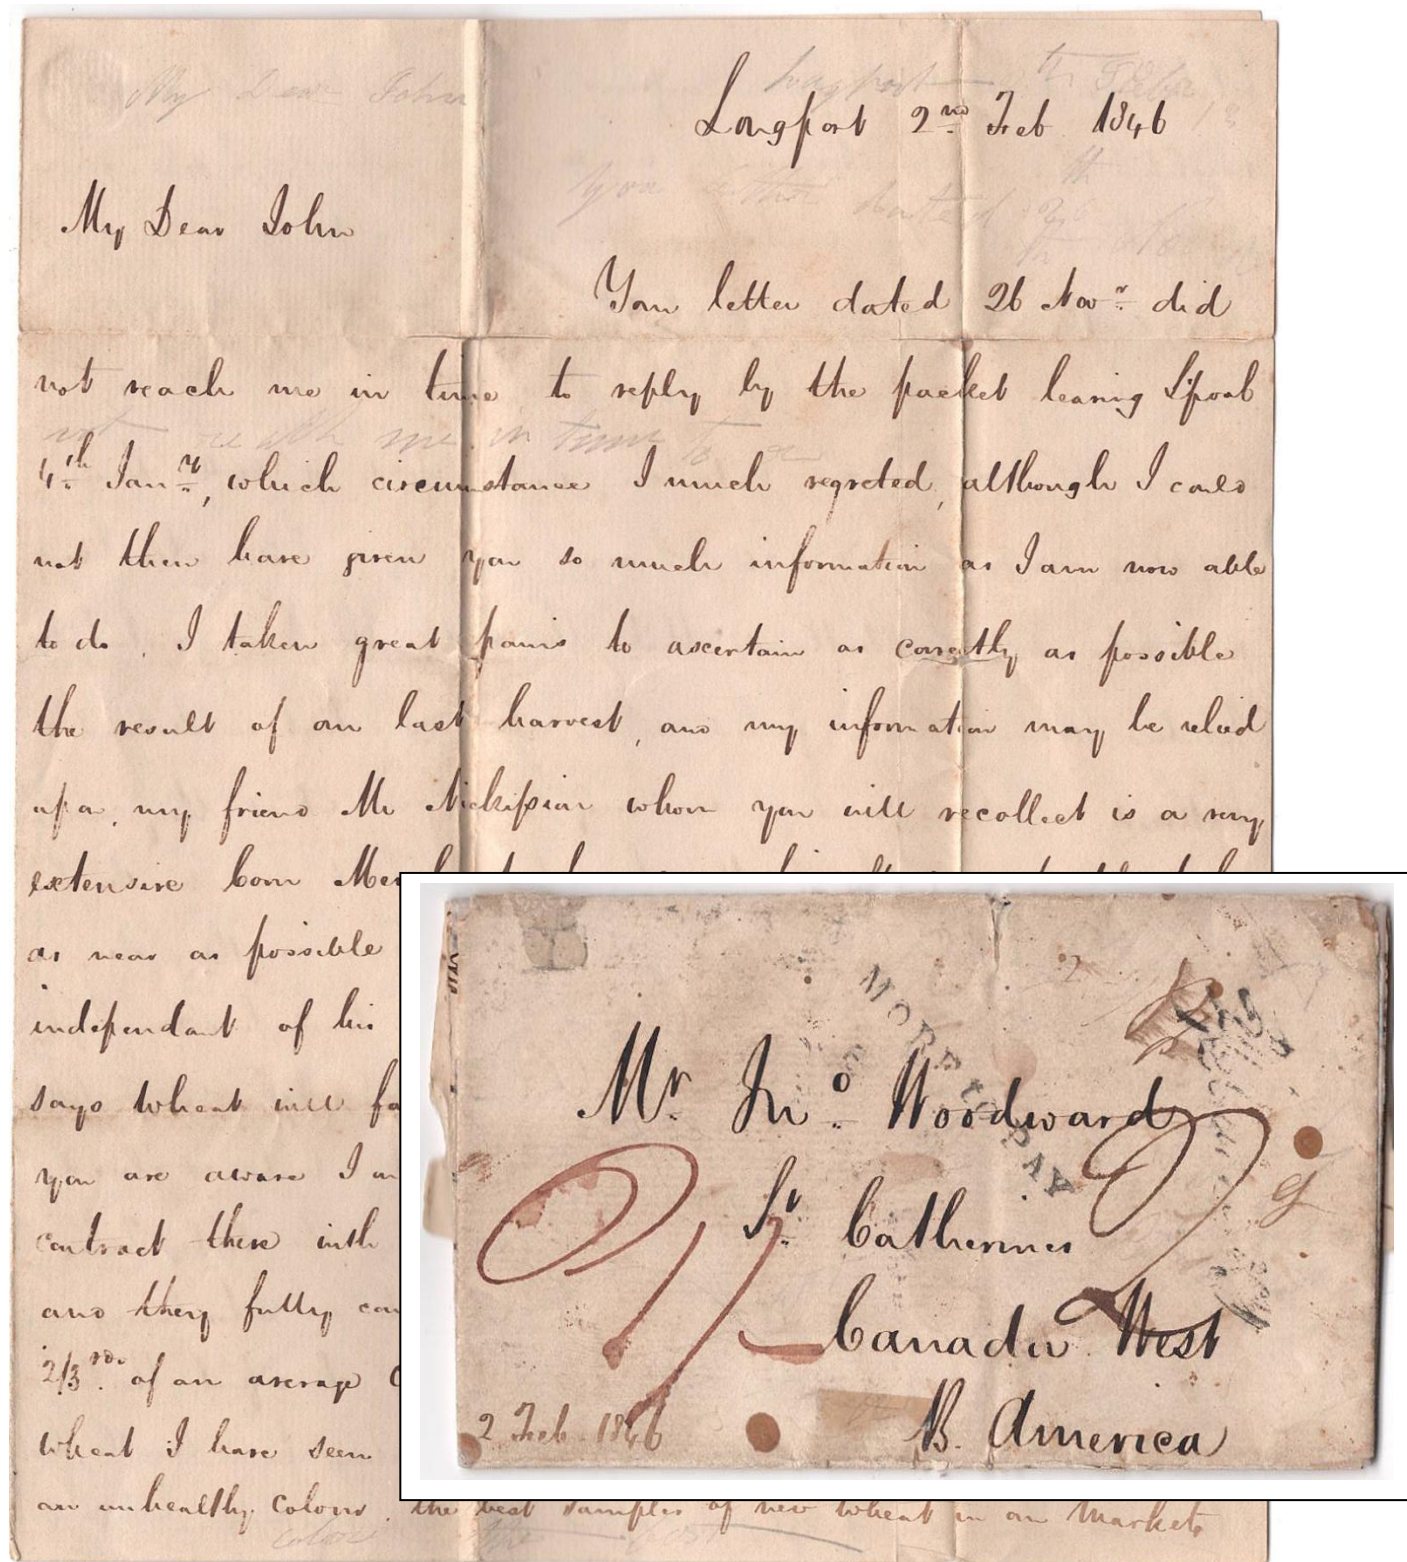 Longport 2nd Feb 1846
My Dear John
Your letter dated 26 Novr did
not reach me in time to reply by the packet leaving L'pool
4th Jany, which circumstance I much regreted, although I could
not then have given you so much information as I am now able
to do. I taken great pains to ascertain as correctly as possible
the result of our last harvest, and my information may be relied
upon, my friend Mr whom you will recollect is a very
extensive Corn
as near as possible
independant of his
says Wheat will
you are aware I
contract there with
and they fully
2/3rds of an average
wheat I have seen
an unhealthy colour. the best samples of new wheat in our markets
MORE TO PAY
Mr Jno Woodward
St Catherines
Canada West
B. America
2 Feb. 1846